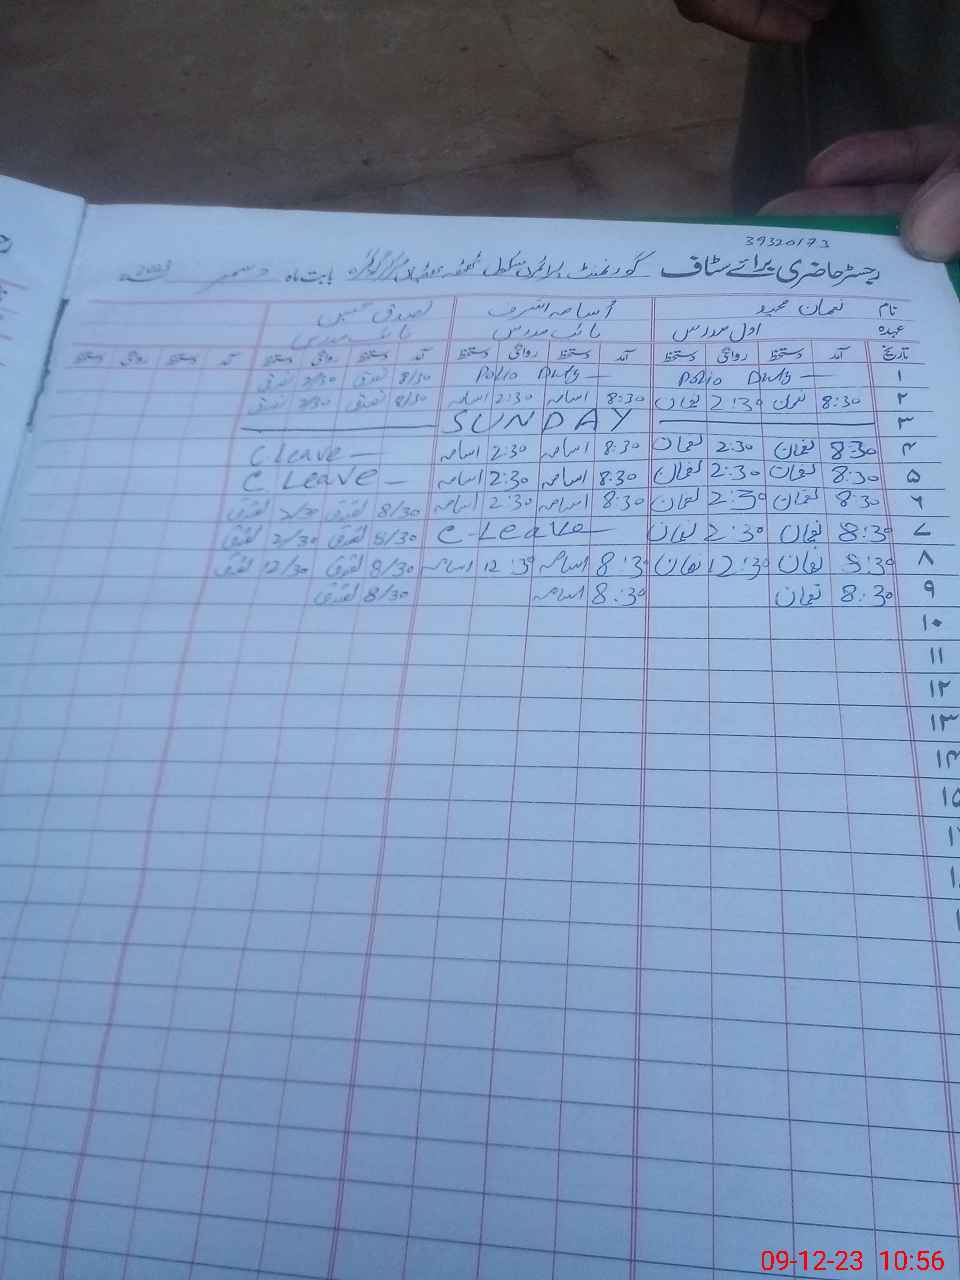 39320173
رجسٹر حاضری برائے سٹاف گورنمنٹ پرائمری سکول بابت ماہ دسمبر 2023ء
نام نعمان مجید اسامہ اشرف تصدق حسین
عہدہ اول مدرس نائب مدرس نائب مدرس
تاریخ آمد دستخط روانگی دستخط آمد دستخط روانگی دستخط آمد دستخط روانگی دستخط آمد دستخط روانگی دستخط
۱ Polio Duty — Polio Duty — 8/30 تصدق 2/30 تصدق
۲ 8:30 نعمان 2:30 نعمان 8:30 اسامہ 2:30 اسامہ 8/30 تصدق 2/30 تصدق
۳ SUNDAY
۴ 8:30 نعمان 2:30 نعمان 8:30 اسامہ 2:30 اسامہ C Leave —
۵ 8:30 نعمان 2:30 نعمان 8:30 اسامہ 2:30 اسامہ C Leave —
۶ 8:30 نعمان 2:30 نعمان 8:30 اسامہ 2:30 اسامہ 8/30 تصدق 2/30 تصدق
۷ 8:30 نعمان 2:30 نعمان C-Leave — 8/30 تصدق 2/30 تصدق
۸ 8:30 نعمان 12:30 نعمان 8:30 اسامہ 12:30 اسامہ 8/30 تصدق 12/30 تصدق
۹ 8:30 نعمان 8:30 اسامہ 8/30 تصدق
۱۰
۱۱
۱۲
۱۳
۱۴
۱۵
09-12-23 10:56